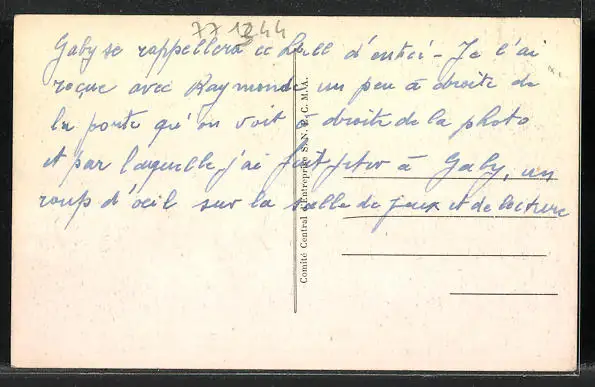 77 1344
Gaby se rappellera ce hall d'entrée - Je l'ai
reçue avec Raymonde un peu à droite de
la porte qu'on voit à droite de la photo
et par laquelle j'ai fait jeter à Gaby, un
coup d'oeil sur la salle de jeux et de lecture
Comité Central d'Entreprise S. N. E. C. M. A.